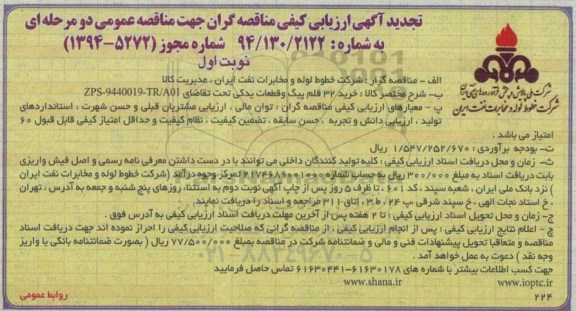 تجدید آگهی ارزیابی کیفی مناقصه گران جهت مناقصه عمومی دو مرحله ای
به شماره: ۹۴/۱۳۰/۲۱۲۲ شماره مجوز (۵۲۷۲-۱۳۹۴)
نوبت اول
شرکت ملی پالایش و پخش فرآورده های نفتی ایران
شرکت خطوط لوله و مخابرات نفت ایران
الف - مناقصه گزار: شرکت خطوط لوله و مخابرات نفت ایران ، مدیریت کالا
ب- شرح مختصر کالا: خرید ۳۲ قلم پیگ وقطعات یدکی تحت تقاضای ZPS-9440019-TR/A01
پ- معیارهای ارزیابی کیفی مناقصه گران: توان مالی ، ارزیابی مشتریان قبلی و حسن شهرت ، استانداردهای
تولید ، ارزیابی دانش و تجربه ، حسن سابقه ، تضمین کیفیت ، نظام کیفیت و حداقل امتیاز کیفی قابل قبول ۶۰
امتیاز می باشد .
ت- بودجه برآوردی: ۱/۵۴۷/۲۵۲/۶۷۰ ریال
ث- زمان و محل دریافت اسناد ارزیابی کیفی : کلیه تولید کنندگان داخلی می توانند با در دست داشتن معرفی نامه رسمی و اصل فیش واریزی
بابت دریافت اسناد به مبلغ ۳۰۰/۰۰۰ ریال به حساب شماره تمرکز وجوه درآمد (شرکت خطوط لوله و مخابرات نفت ایران
) نزد بانک ملی ایران ، شعبه سپند ، کد ۶۰۱ ، تا ظرف ۵ روز پس از چاپ آگهی نوبت دوم به استثناء روزهای پنج شنبه و جمعه به آدرس : تهران
، خ استاد نجات الهی ، خ سپند شرقی ،پ ۲۴ ، ط ۳ ، اتاق ۳۱۱ مراجعه و اسناد را دریافت نمایند.
ج- زمان و محل تحویل اسناد ارزیابی کیفی : تا ۲ هفته پس از آخرین مهلت دریافت اسناد ارزیابی کیفی به آدرس فوق .
چ - اعلام نتایج ارزیابی کیفی : پس از انجام ارزیابی کیفی ، از مناقصه گرانی که صلاحیت ارزیابی کیفی را احراز نموده اند جهت دریافت اسناد
مناقصه و متعاقبا تحویل پیشنهادات فنی و مالی و ضمانتنامه شرکت در مناقصه بمبلغ ۷۷/۵۰۰/۰۰۰ ریال ( بصورت ضمانتنامه بانکی یا واریز
وجه نقد ) دعوت به عمل خواهد آمد.
جهت کسب اطلاعات بیشتر با شماره های ۶۱۶۳۰۱۷۸-۶۱۶۳۰۴۴۱ تماس حاصل فرمایید
www.ioptc.ir
www.shana.ir
۲۲۴
روابط عمومی
۰۲۱-۸۸۳۴۹۶۷۰-۵